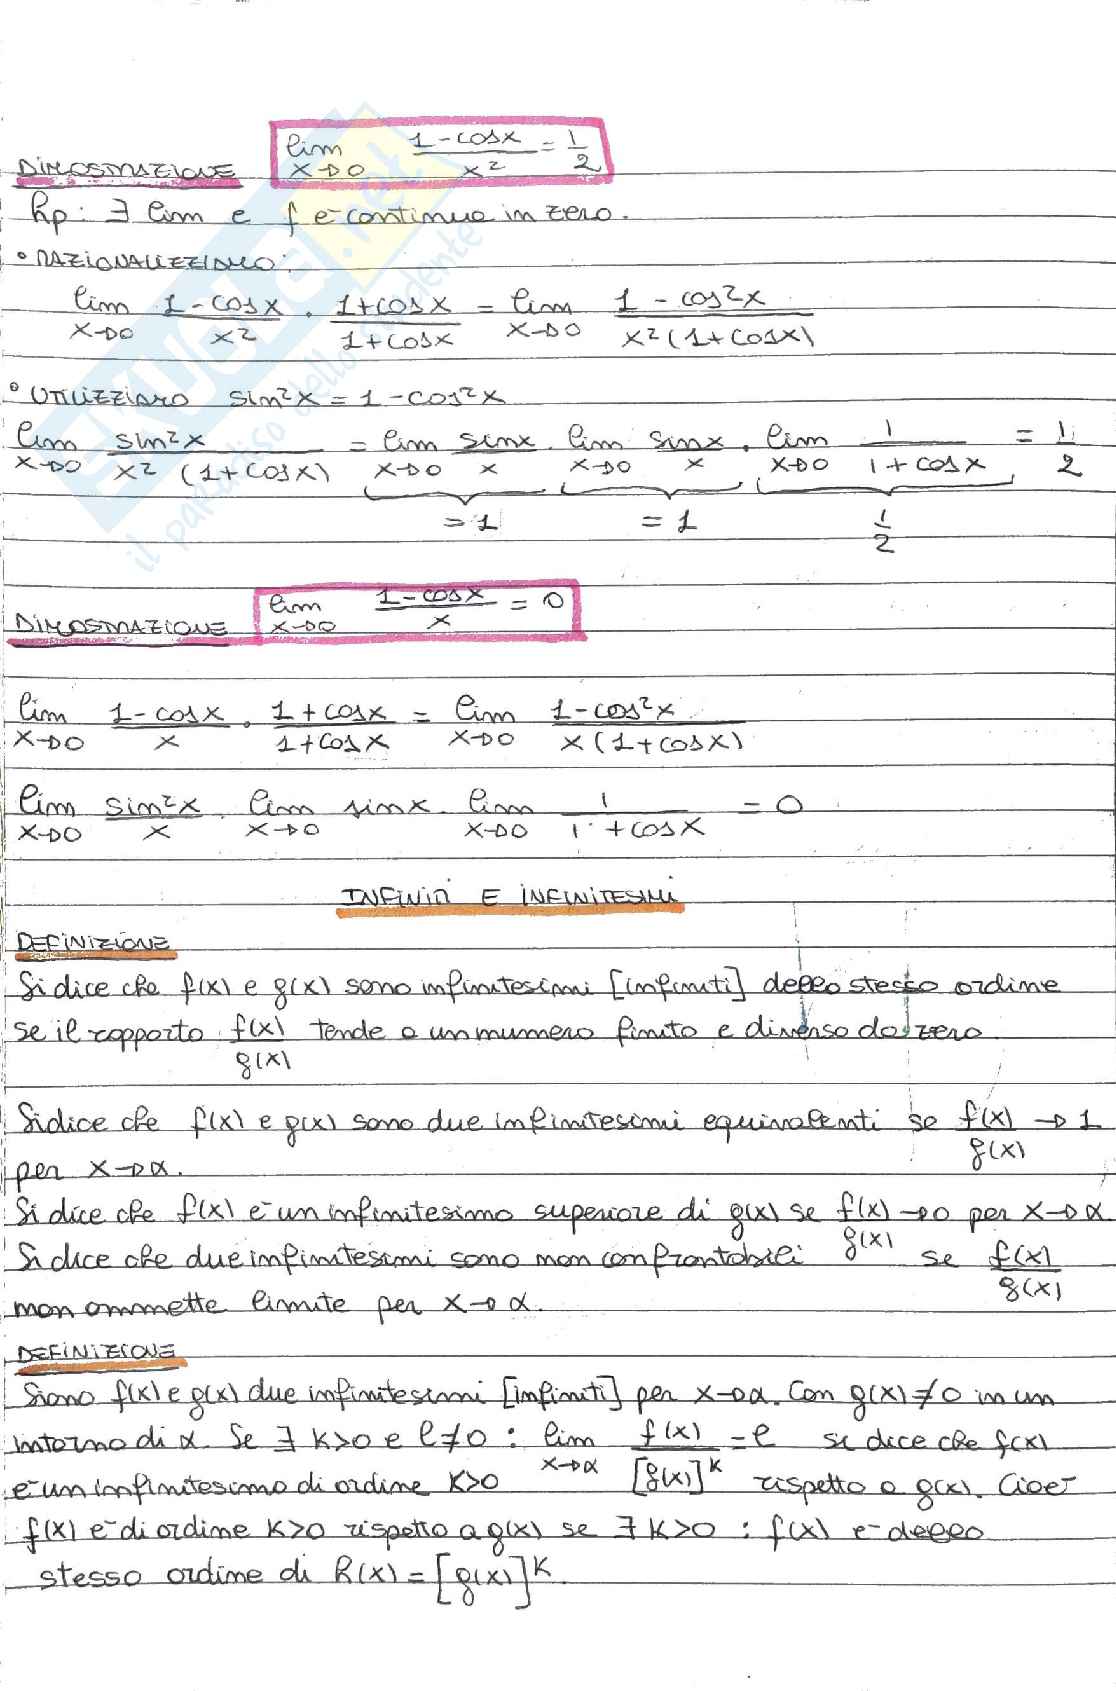 DIMOSTRAZIONE lim x→0 (1-cosx)/x² = 1/2
hp: ∃ lim e f è continua in zero.
• RAZIONALIZZIAMO:
lim x→0 (1-cosx)/x² · (1+cosx)/(1+cosx) = lim x→0 (1-cos²x)/(x²(1+cosx))
• UTILIZZIAMO sin²x = 1-cos²x
lim x→0 sin²x/(x² (1+cosx)) = lim x→0 sinx/x · lim x→0 sinx/x · lim x→0 1/(1+cosx) = 1/2
=1 =1 1/2
DIMOSTRAZIONE lim x→0 (1-cosx)/x = 0
lim x→0 (1-cosx)/x · (1+cosx)/(1+cosx) = lim x→0 (1-cos²x)/(x(1+cosx))
lim x→0 sin²x/x · lim x→0 sinx · lim x→0 1/(1+cosx) = 0
INFINITI E INFINITESIMI
DEFINIZIONE
Si dice che f(x) e g(x) sono infinitesimi [infiniti] dello stesso ordine
se il rapporto f(x)/g(x) tende a un numero finito e diverso da zero
Si dice che f(x) e g(x) sono due infinitesimi equivalenti se f(x)/g(x) → 1
per x→α.
Si dice che f(x) è un infinitesimo superiore di g(x) se f(x)/g(x) →0 per x→α
Si dice che due infinitesimi sono non confrontabili se f(x)/g(x)
non ammette limite per x→α.
DEFINIZIONE
Siano f(x) e g(x) due infinitesimi [infiniti] per x→α. Con g(x)≠0 in un
intorno di α. Se ∃ K>0 e l≠0 : lim x→α f(x)/[g(x)]^K = l si dice che f(x)
è un infinitesimo di ordine K>0 rispetto a g(x). Cioè
f(x) è di ordine K>0 rispetto a g(x) se ∃ K>0 : f(x) è dello
stesso ordine di h(x) = [g(x)]^K.
SKUOLA.net
il paradiso dello studente